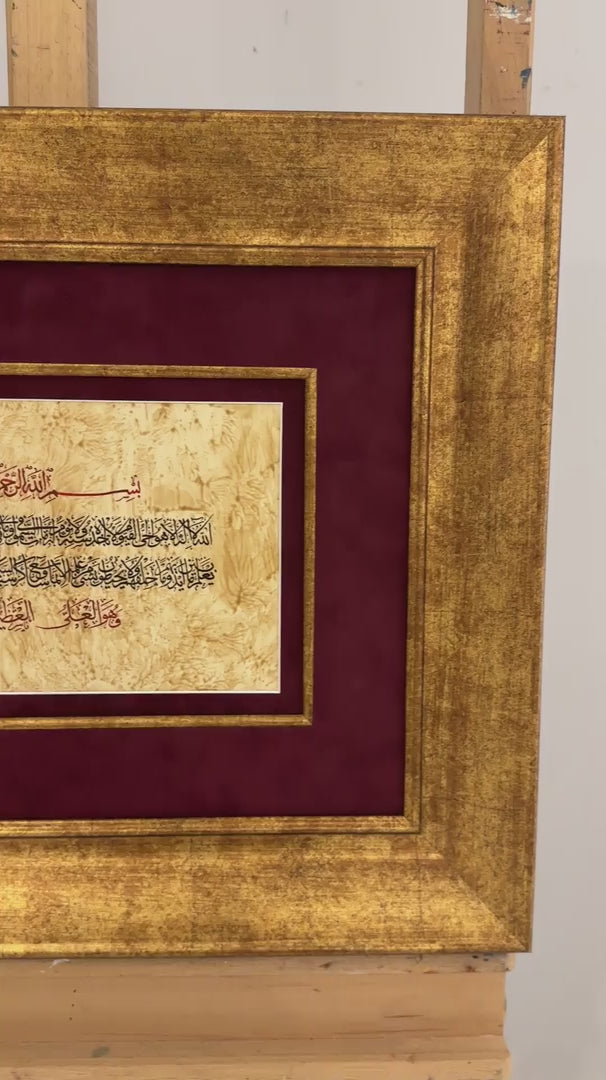 بِسْمِ اللَّهِ الرَّحْمَ
اللَّهُ لَا إِلَهَ إِلَّا هُوَ الْحَيُّ الْقَيُّومُ لَا تَأْخُذُهُ سِنَةٌ وَلَا نَوْمٌ لَهُ مَا فِي السَّمَوَاتِ وَمَا
يَعْلَمُ مَا بَيْنَ أَيْدِيهِمْ وَمَا خَلْفَهُمْ وَلَا يُحِيطُونَ بِشَيْءٍ مِنْ عِلْمِهِ إِلَّا بِمَا شَاءَ وَسِعَ كُرْسِيُّهُ
وَهُوَ الْعَلِيُّ الْعَظِ